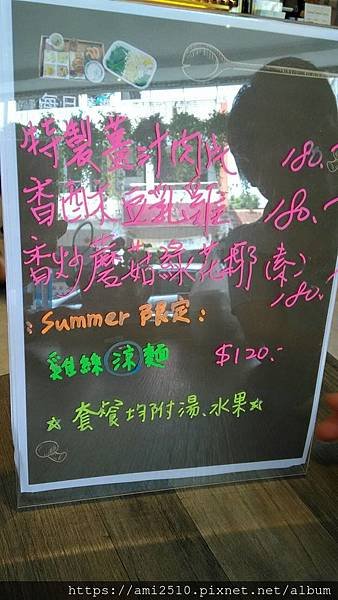 每日
特製薑汁肉片 180.-
香酥豆乳雞 180.-
香炒蘑菇綠花椰(素)
180.-
: Summer 限定 :
雞絲涼麵 $120.-
☆ 套餐均附湯、水果☆
https://ami2510.pixnet.net/album